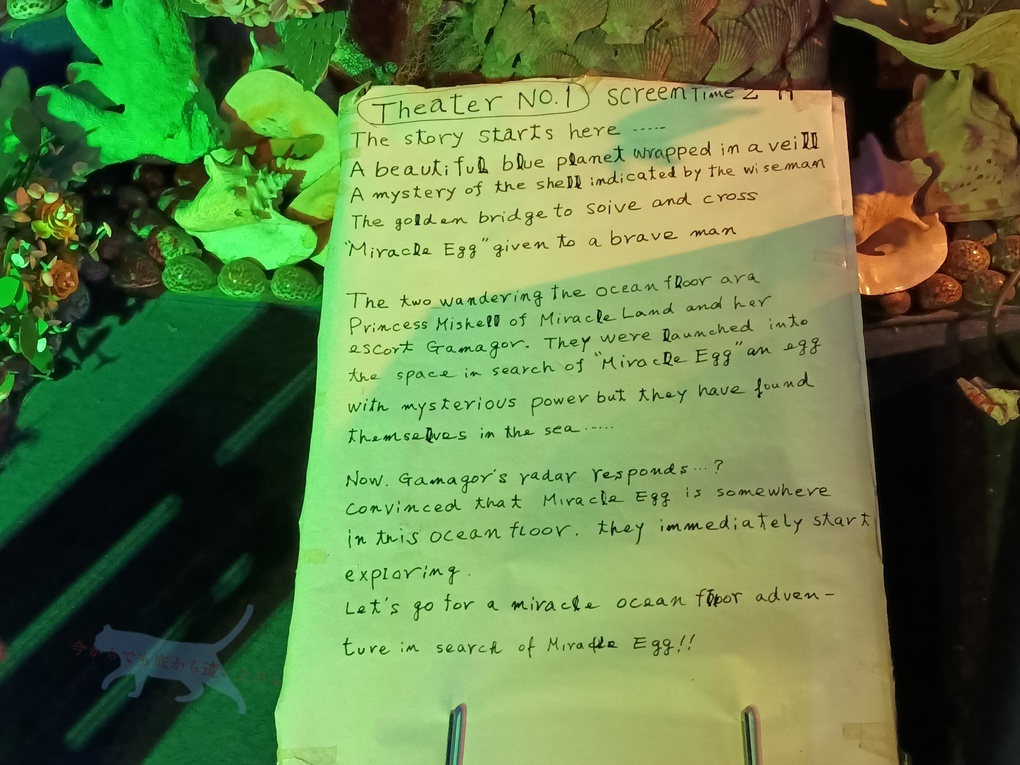 Theater NO.1 screen Time 2
The story starts here -----
A beautiful blue planet wrapped in a veill
A mystery of the shell indicated by the wiseman
The golden bridge to soive and cross
"Miracle Egg" given to a brave man
The two wandering the ocean floor ara
Princess Mishell of Miracle Land and her
escort Gamagor. They were launched into
the space in search of "Miracle Egg" an egg
with mysterious power but they have found
themselves in the sea .....
Now. Gamagor's radar responds...?
convinced that Miracle Egg is somewhere
in this ocean floor. they immediately start
exploring.
Let's go for a miracle ocean floor adven-
ture in search of Miracle Egg!!